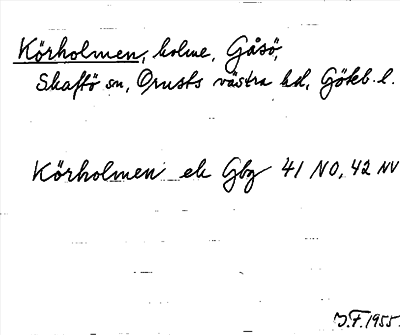 Körholmen, holme, Gåsö,
Skaftö sn, Orusts västra hd, Göteb. l.
Körholmen ek Gbg 41 NO, 42 NV
J.F. 1955.